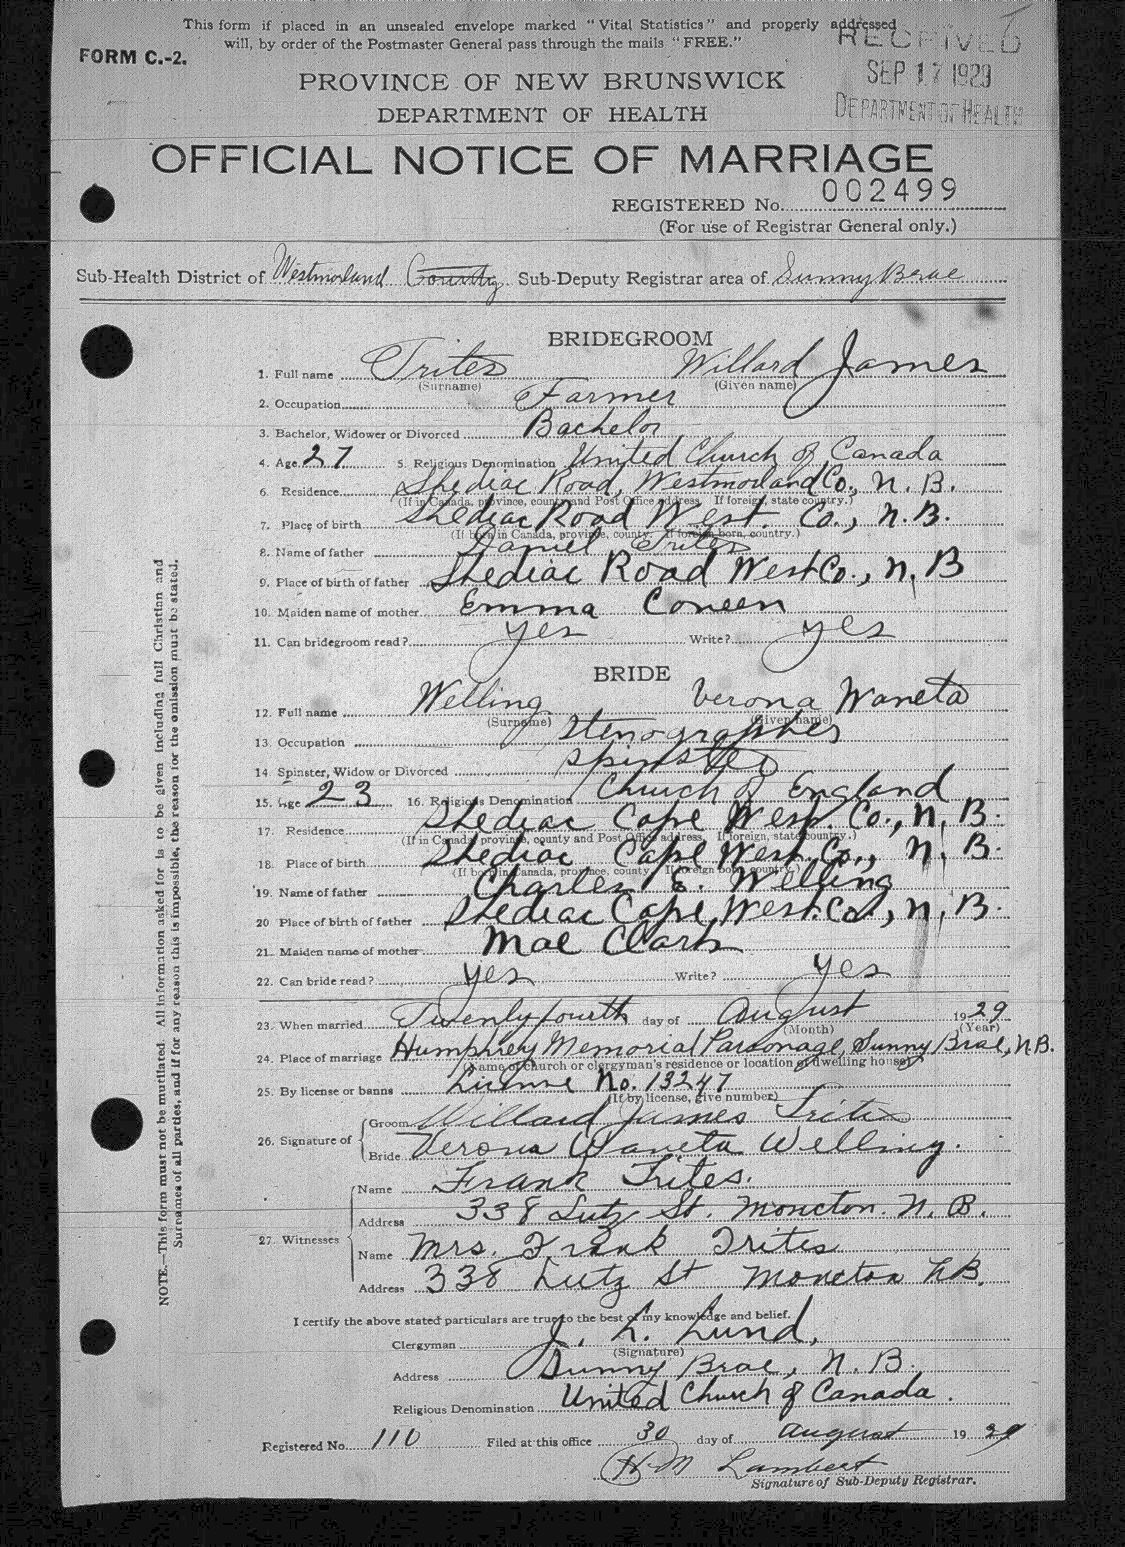 This form if placed in an unsealed envelope marked "Vital Statistics" and properly addressed
will, by order of the Postmaster General pass through the mails "FREE."
FORM C.-2.
RECEIVED
SEP 17 1929
DEPARTMENT OF HEALTH
PROVINCE OF NEW BRUNSWICK
DEPARTMENT OF HEALTH
OFFICIAL NOTICE OF MARRIAGE
REGISTERED No. 002499
(For use of Registrar General only.)
Sub-Health District of Westmorland County Sub-Deputy Registrar area of Sunny Brae
BRIDEGROOM
1. Full name Trites Willard James
(Surname) (Given name)
2. Occupation Farmer
3. Bachelor, Widower or Divorced Bachelor
4. Age 27 5. Religious Denomination United Church of Canada
6. Residence Shediac Road, Westmorland Co., N. B.
(If in Canada, province, county and Post Office address. If foreign, state country.)
7. Place of birth Shediac Road West. Co., N.B.
(If born in Canada, province, county. If foreign born, country.)
8. Name of father Daniel Trites
9. Place of birth of father Shediac Road West Co., N. B
10. Maiden name of mother Emma Coneen
11. Can bridegroom read? yes Write? yes
BRIDE
12. Full name Welling Verona Waneta
(Surname) (Given name)
13. Occupation Stenographer
14 Spinster, Widow or Divorced Spinster
15. Age 23 16. Religious Denomination Church of England
17. Residence Shediac Cape West. Co., N. B.
(If in Canada, province, county and Post Office address. If foreign, state country.)
18. Place of birth Shediac Cape West. Co., N. B.
(If born in Canada, province, county. If foreign born, country.)
19. Name of father Charles E. Welling
20 Place of birth of father Shediac Cape, West. Co., N. B.
21. Maiden name of mother Mae Clark
22. Can bride read? yes Write? yes
23. When married Twenty fourth day of August 1929
(Month) (Year)
24. Place of marriage Humphrey Memorial Parsonage, Sunny Brae, N.B.
(Name of church or clergyman's residence or location of dwelling house)
25. By license or banns License No. 13247
(If by license, give number)
26. Signature of Groom Willard James Trites
Bride Verona Waneta Welling.
27. Witnesses Name Frank Trites.
Address 338 Lutz St. Moncton. N. B.
Name Mrs. Frank Trites
Address 338 Lutz St Moncton N.B.
I certify the above stated particulars are true to the best of my knowledge and belief.
Clergyman J. L. Lund,
(Signature)
Address Sunny Brae, N. B.
Religious Denomination United Church of Canada.
Registered No. 110 Filed at this office 30 day of August 1929
H M Lambert
Signature of Sub-Deputy Registrar.
NOTE.—This form must not be mutilated. All information asked for is to be given including full Christian and
Surnames of all parties, and if for any reason this is impossible, the reason for the omission must be stated.